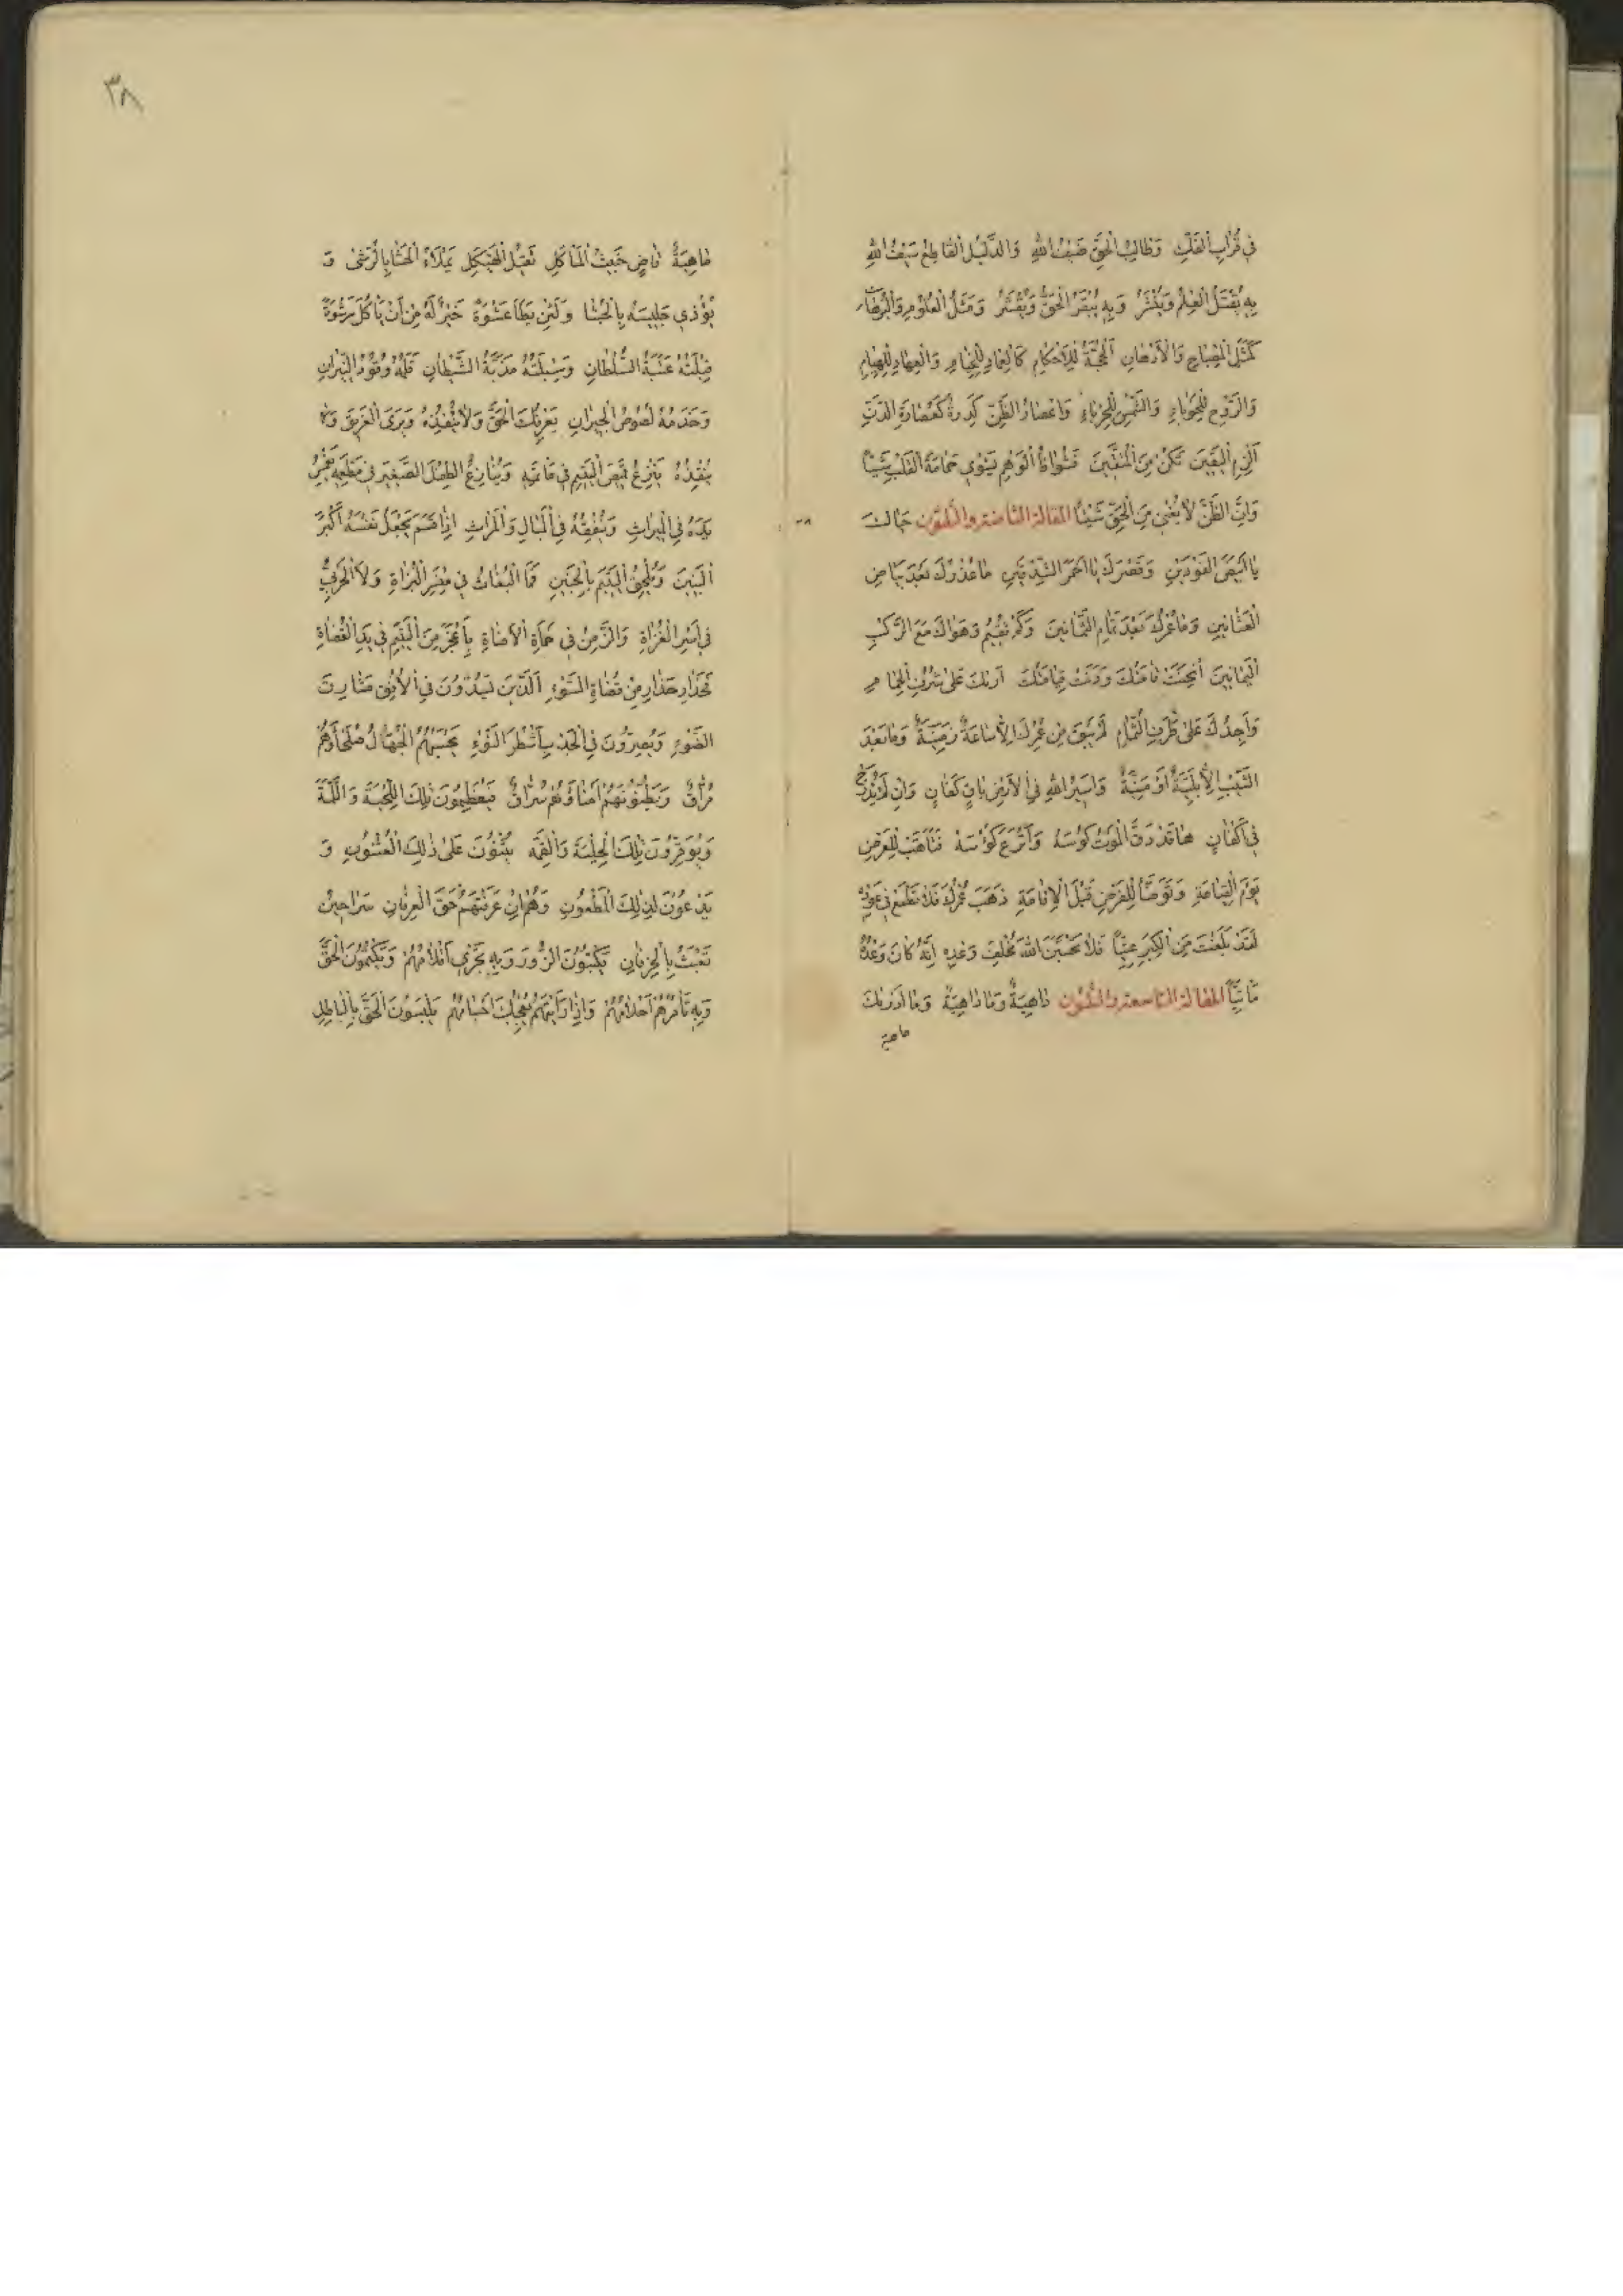 فِي قِرَابِ الْقَلْبِ وَطَالِبُ الْحَقِّ ضَيْفُ اللهِ وَالدَّلِيلُ الْقَاطِعُ سَيْفُ اللهِ
بِهِ يُقْتَلُ الْعِلْمُ وَيُنْشَرُ وَبِهِ يُبْقَرُ الْحَقُّ وَيُقْشَرُ وَمَثَلُ الْعُلُومِ وَالْبُرْهَانِ
كَمَثَلِ الْمِصْبَاحِ وَالْأَدْهَانِ اَلْحُجَّةُ لِلْأَحْكَامِ كَالْعِمَادِ لِلْخِيَامِ وَالْعِهَادِ لِلْهِيَامِ
وَالرَّوْحِ لِلْحَوْبَاءِ وَالشَّمْسِ لِلْحِرْبَاءِ وَاعْصَارُ الظَّنِّ كَدِرَةٌ كَعُصَارَةِ الدَّنِّ
اَلْزِمِ الْيَقِينَ تَكُنْ مِنَ الْمُتَّقِينَ فَشُوَاظُ الْوَهْمِ يَشْوِي حَمَامَةَ الْقَلْبِ شَيًّا
وَاِنَّ الظَّنَّ لَا يُغْنِي مِنَ الْحَقِّ شَيْئًا المقالة الثامنة والثلثون حَالَكَ
يَا اَبْيَضَ الْفَوْدَيْنِ وَقَصْرَكَ يَا اَحْمَرَ الشِّدْقَيْنِ مَا عُذْرُكَ بَعْدَ بَيَاضِ
الْعَثَانِينِ وَمَا غَرَّكَ بَعْدَ تَمَامِ الثَّمَانِينَ وَكَمْ تُقِيمُ وَهَوَاكَ مَعَ الرَّكْبِ
الْيَمَانِينَ اَنْحَنَتْ قَامَتُكَ وَدَنَتْ قِيَامَتُكَ اَرٰىكَ عَلٰى شَرَفِ الْحِمَامِ
وَاَجِدُكَ عَلٰى طَرَفِ الثُّمَامِ لَمْ يَبْقَ مِنْ عُمْرِكَ اِلَّا سَاعَةٌ زَمَنِيَّةٌ وَمَا بَعْدَ
الشَّيْبِ اِلَّا بَلِيَّةٌ اَوْ مَنِيَّةٌ وَاَسِيرُ اللهِ فِي الْاَرْضِ بَاقٍ كَفَانٍ وَاِنْ لَمْ يُدْرَجْ
فِي اَكْفَانٍ هَا قَدْ دَقَّ الْمَوْتُ كُوسَهُ وَاَتْرَعَ كُؤُسَهُ فَتَأَهَّبْ لِلْعَرْضِ
يَوْمَ الْقِيَامَةِ وَتَوَضَّأْ لِلْفَرْضِ قَبْلَ الْاِقَامَةِ ذَهَبَ عُمْرُكَ فَلَا تَطْمَعْ فِي عَوْدِهِ
لَقَدْ بَلَغْتَ مِنَ الْكِبَرِ عِتِيًّا فَلَا تَحْسَبَنَّ اللهَ مُخْلِفَ وَعْدِهِ اِنَّهُ كَانَ وَعْدُهُ
مَأْتِيًّا المقالة التاسعة والثلثون دَاهِيَةٌ وَمَا دَاهِيَةٌ وَمَا اَدْرٰىكَ
ماهية
مَاهِيَةٌ قَاضٍ خَبِيثُ الْمَأْكَلِ ثَقِيلُ الْهَيْكَلِ يَمْلَاُ الْحَشَا بِالرُّشٰى وَ
يُؤْذِي جَلِيسَهُ بِالْجُشَا وَلَئِنْ يَطَأْ عَشْوَةً خَيْرٌ لَهُ مِنْ اَنْ يَأْكُلَ رِشْوَةً
قِبْلَتُهُ عَتَبَةُ السُّلْطَانِ وَسَبَلَتُهُ مَذَبَّةُ الشَّيْطَانِ قَلَمُهُ وَقُودُ النِّيرَانِ
وَخَدَمُهُ لُصُوصُ الْجِيرَانِ يَعْرِفُ الْحَقَّ وَلَا يُنْفِذُهُ وَيَرَى الْغَرِيقَ وَلَا
يُنْقِذُهُ يَنْزِعُ قَمِيصَ الْيَتِيمِ فِي مَأْتَمِهِ وَيُنَازِعُ الطِّفْلَ الصَّغِيرَ فِي مَطْعَمِهِ يَغْمِسُ
يَدَهُ فِي الْمِيرَاثِ وَيُنْفِقُهُ فِي الْمَبَالِ وَالْمَرَاثِ اِذَا قَسَمَ يَجْعَلُ نَفْسَهُ اَكْبَرَ
الْبَنِينَ وَيُلْحِقُ الْيَتِيمَ بِالْجَنِينِ مَا الْبُغَاثُ فِي مِنْسَرِ الْبُزَاةِ وَلَا الْحَرْبِيُّ
فِي اَسْرِ الْغُزَاةِ وَالزَّمِنُ فِي حَمْاَةِ الْاَضَاةِ بِاَعْجَزَ مِنَ الْيَتِيمِ فِي يَدِ الْقُضَاةِ
فَحَذَارِ حَذَارِ مِنْ قُضَاةِ السَّوْءِ اَلَّذِينَ يَسُدُّونَ فِي الْاُفُقِ مَشَارِقَ
الضَّوْءِ وَيُصِرُّونَ فِي الْجَدْبِ اَشْطُرَ النَّوْءِ يَحْسَبُهُمُ الْجُهَّالُ صُلَحَاءَ وَهُمْ
مُرَّاقٌ وَيَظُنُّونَهُمْ اُمَنَاءَ وَهُمْ سُرَّاقٌ فَيُعَظِّمُونَ تِلْكَ اللِّحْيَةَ وَاللِّمَّةَ
وَيُوَقِّرُونَ تِلْكَ الْحِلْيَةَ وَالْعِمَّةَ يُثْنُونَ عَلٰى ذٰلِكَ الْعُثْنُونِ وَ
يَدْعُونَ لِذٰلِكَ الْمَطْعُونِ وَهُمْ اِنْ عَرَفْتَهُمْ حَقَّ الْعِرْفَانِ سَرَاحِينُ
تَعْبَثُ بِالْخِرْفَانِ يَكْتُبُونَ الزُّورَ وَبِهِ تَجْرِي اَقْلَامُهُمْ وَيَكْتُمُونَ الْحَقَّ
وَبِهِ تَأْمُرُهُمْ اَحْلَامُهُمْ وَاِذَا رَاَيْتَهُمْ تُعْجِبُكَ اَجْسَامُهُمْ يَلْبِسُونَ الْحَقَّ بِالْبَاطِلِ
٣٨